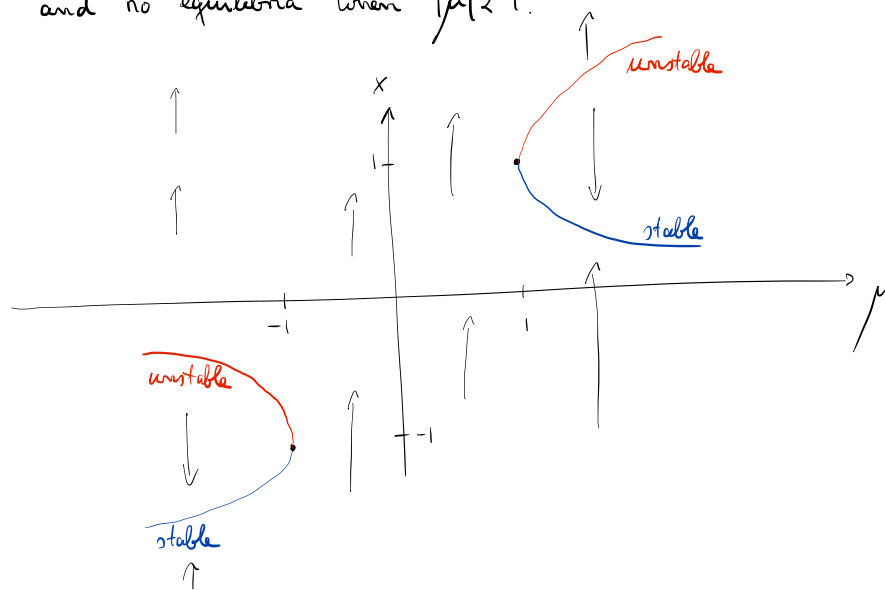 and no equilibria when |μ|<1.
unstable
x
1
stable
-1
1
μ
unstable
-1
stable